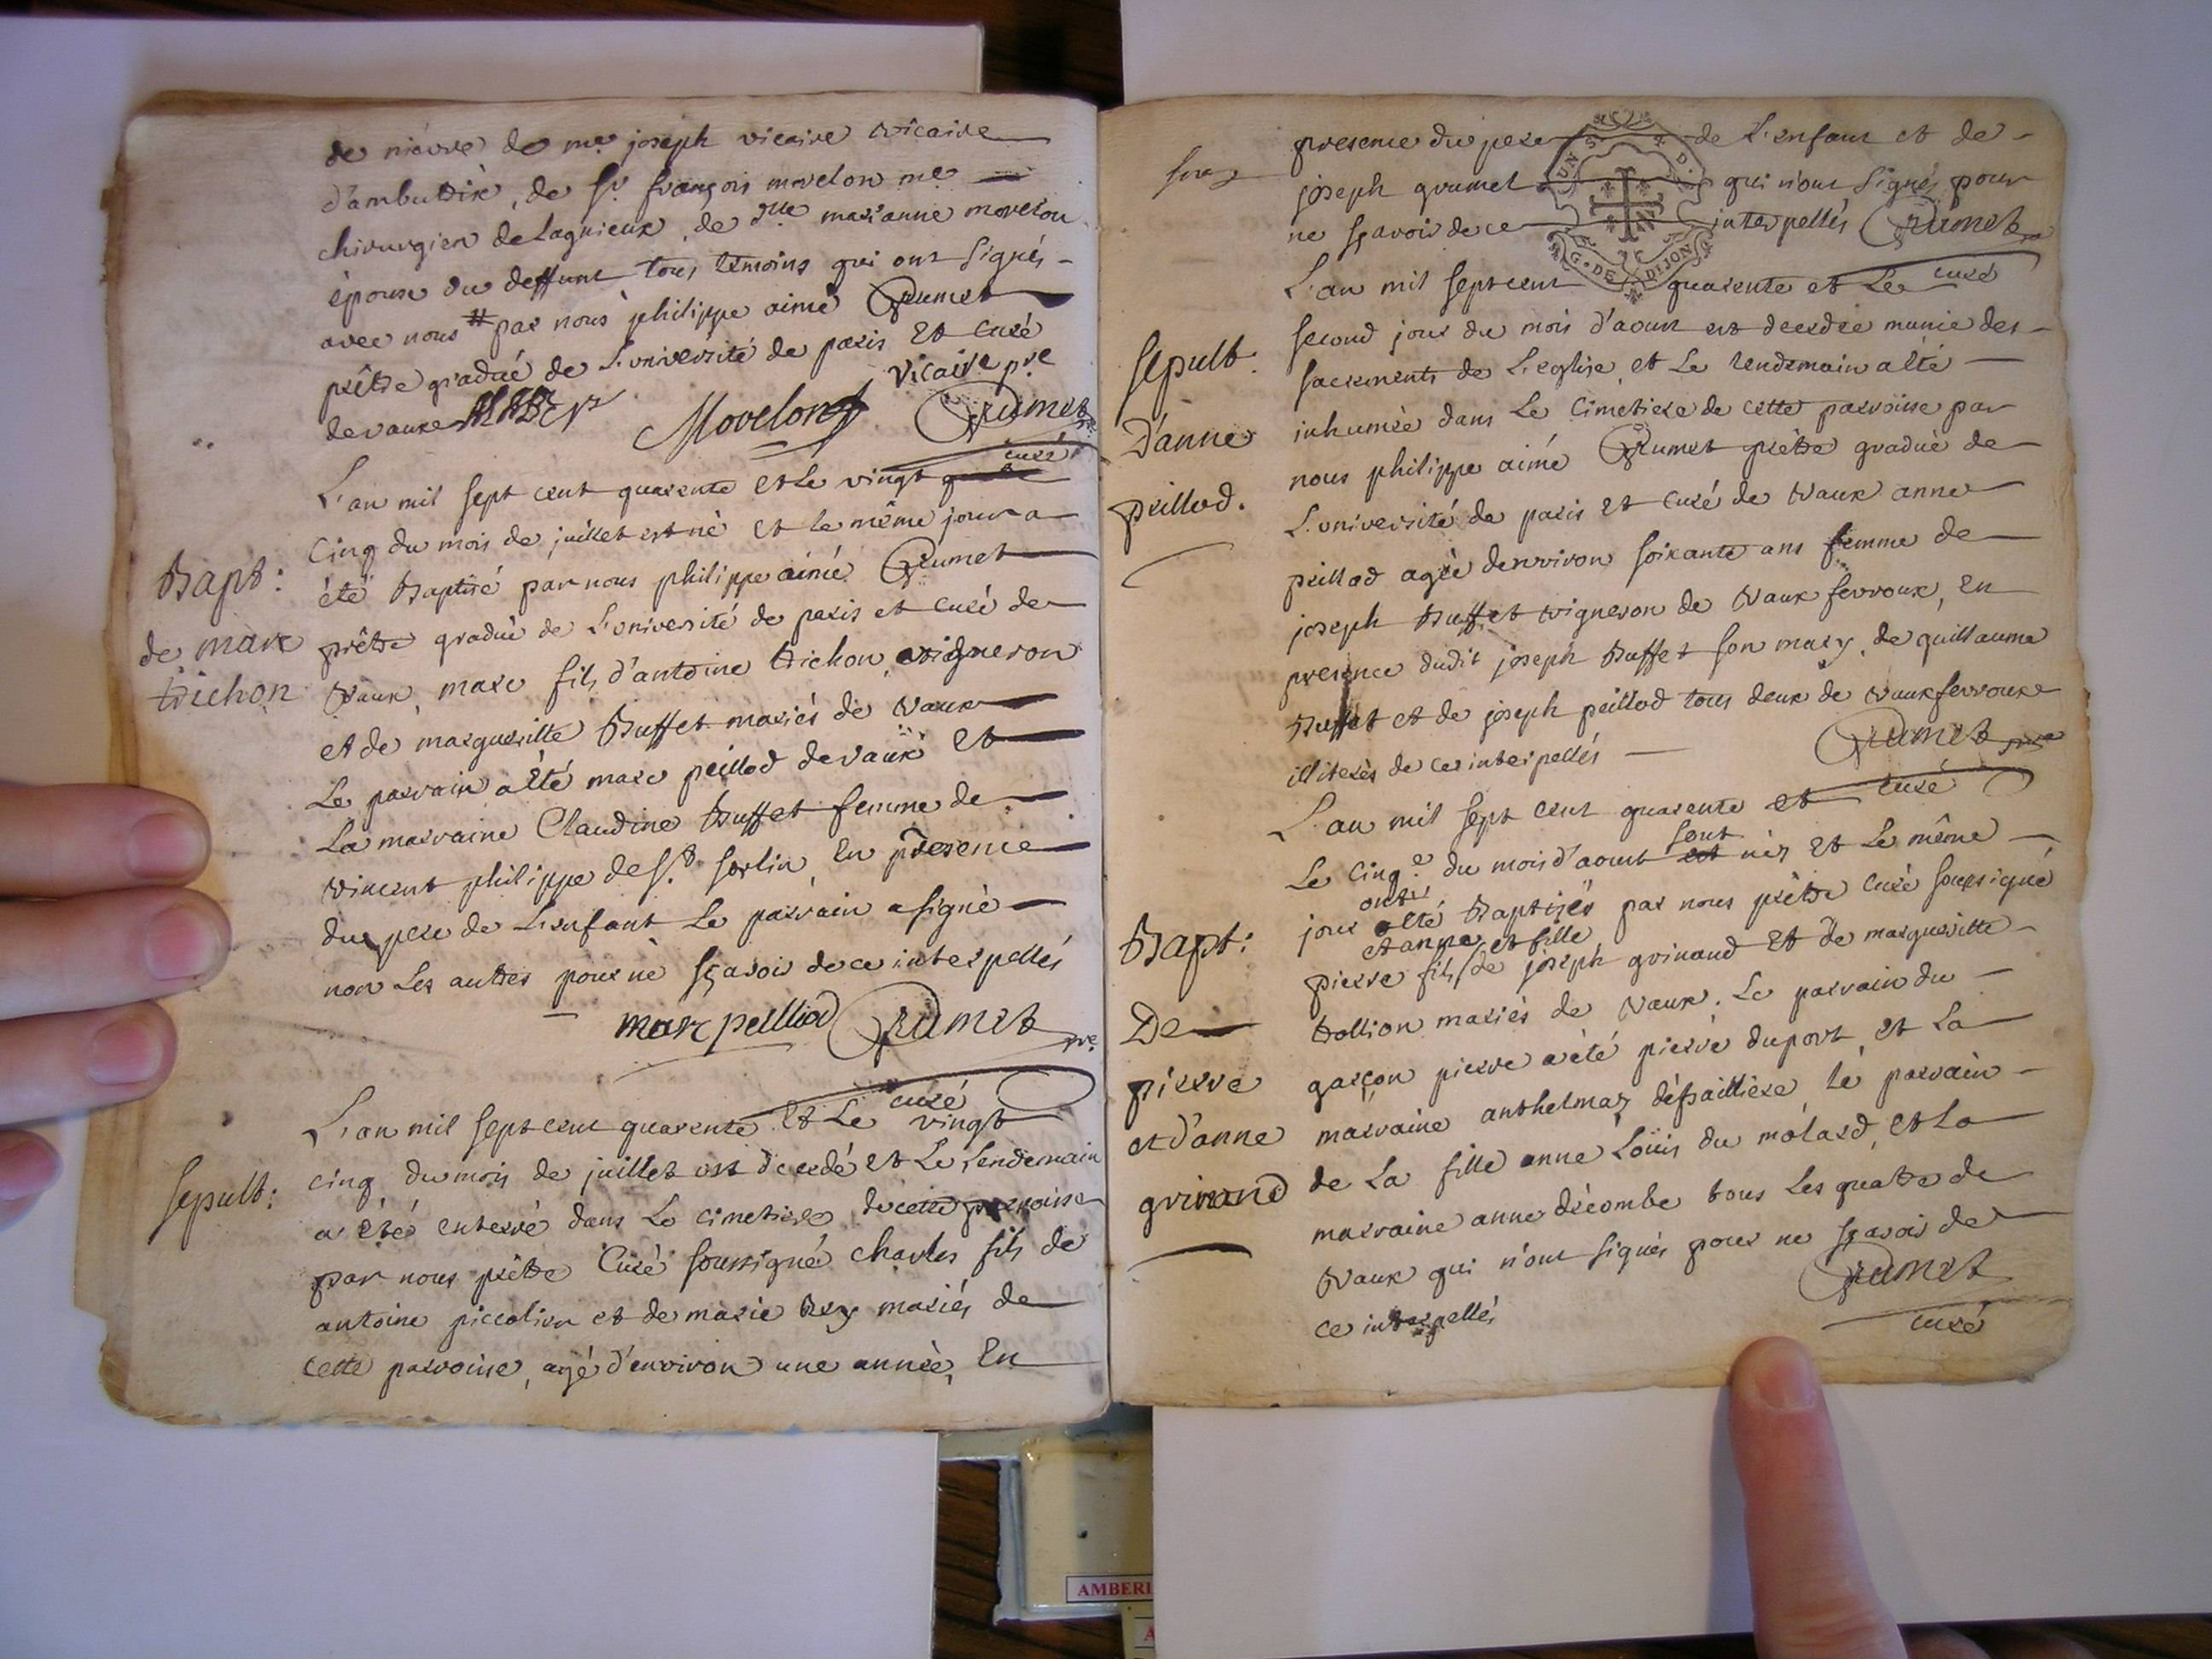 de nièvre de me joseph vicaire vicaire
d'ambutrix, de sr françois movelon me
chirurgien de Lagnieux, de dlle marianne movelon
épouse du deffunt tous témoins qui ont signés
avec nous # par nous philippe aimé Grumet
prêtre gradué de L'université de paris et curé
de vaux
Movelon
vicaire pre
Grumet pre
curé
L'an mil sept cent quarente et le vingt
cinq du mois de juillet est né et le même jour a
Bapt:
été Baptisé par nous philippe aimé Grumet
de marc
prêtre gradué de L'université de paris et curé de
trichon
Vaux, marc fils d'antoine trichon vigneron
et de margueritte Buffet mariés de Vaux
Le parrain a été marc peillod de vaux et
La marraine Claudine Buffet femme de
vincent philippe de st sorlin, En présence
du pere de L'enfant Le parrain a signé
non Les autres pour ne sçavoir de ce interpellés
marc peilliod Grumet pre
curé
L'an mil sept cent quarente et Le vingt
sepult:
cinq du mois de juillet est decedé et Le Lendemain
a été enterré dans Le cimetiere de cette parroisse
par nous prêtre Curé soussigné charles fils de
antoine piccolion et de marie Rey mariés de
cette parroisse, agé d'environ une année, En
presence du pere de L'enfant et de
joseph grumet qui n'ont signés pour
ne sçavoir de ce interpellés Grumet pre
curé
UN S. 4 D.
G. DE DIJON
L'an mil sept cent quarente et Le
second jour du mois d'aoust est decedée munie des
sepult.
sacrements de L'eglise et Le Lendemain a été
D'anne
inhumée dans Le Cimetiere de cette parroisse par
nous philippe aimé Grumet prêtre gradué de
peillod.
L'université de paris et curé de Vaux anne
peillod agée d'environ soixante ans femme de
joseph Buffet vigneron de Vaux fevroux, En
presence dudit joseph Buffet son mary, de guillaume
Buffet et de joseph peillod tous deux de vauxfevroux
illiterés de ce interpellés
Grumet pre
curé
L'an mil sept cent quarente et
sont
Le cinq.e du mois d'aoust est nés et Le même
ont
jour a été Baptisés par nous prêtre Curé soussigné
et anne et fille
Bapt:
pierre fils de joseph grinand et de margueritte
De
tollion mariés de Vaux. Le parrain du
pierre
garçon pierre a été pierre duport, et La
et d'anne
marraine anthelmaz defailliere, Le parrain
grinand
de La fille anne Loüis du molard, et La
marraine anne decombe tous Les quatre de
Vaux qui n'ont signés pour ne sçavoir de
ce interpellés
Grumet
curé
AMBERI